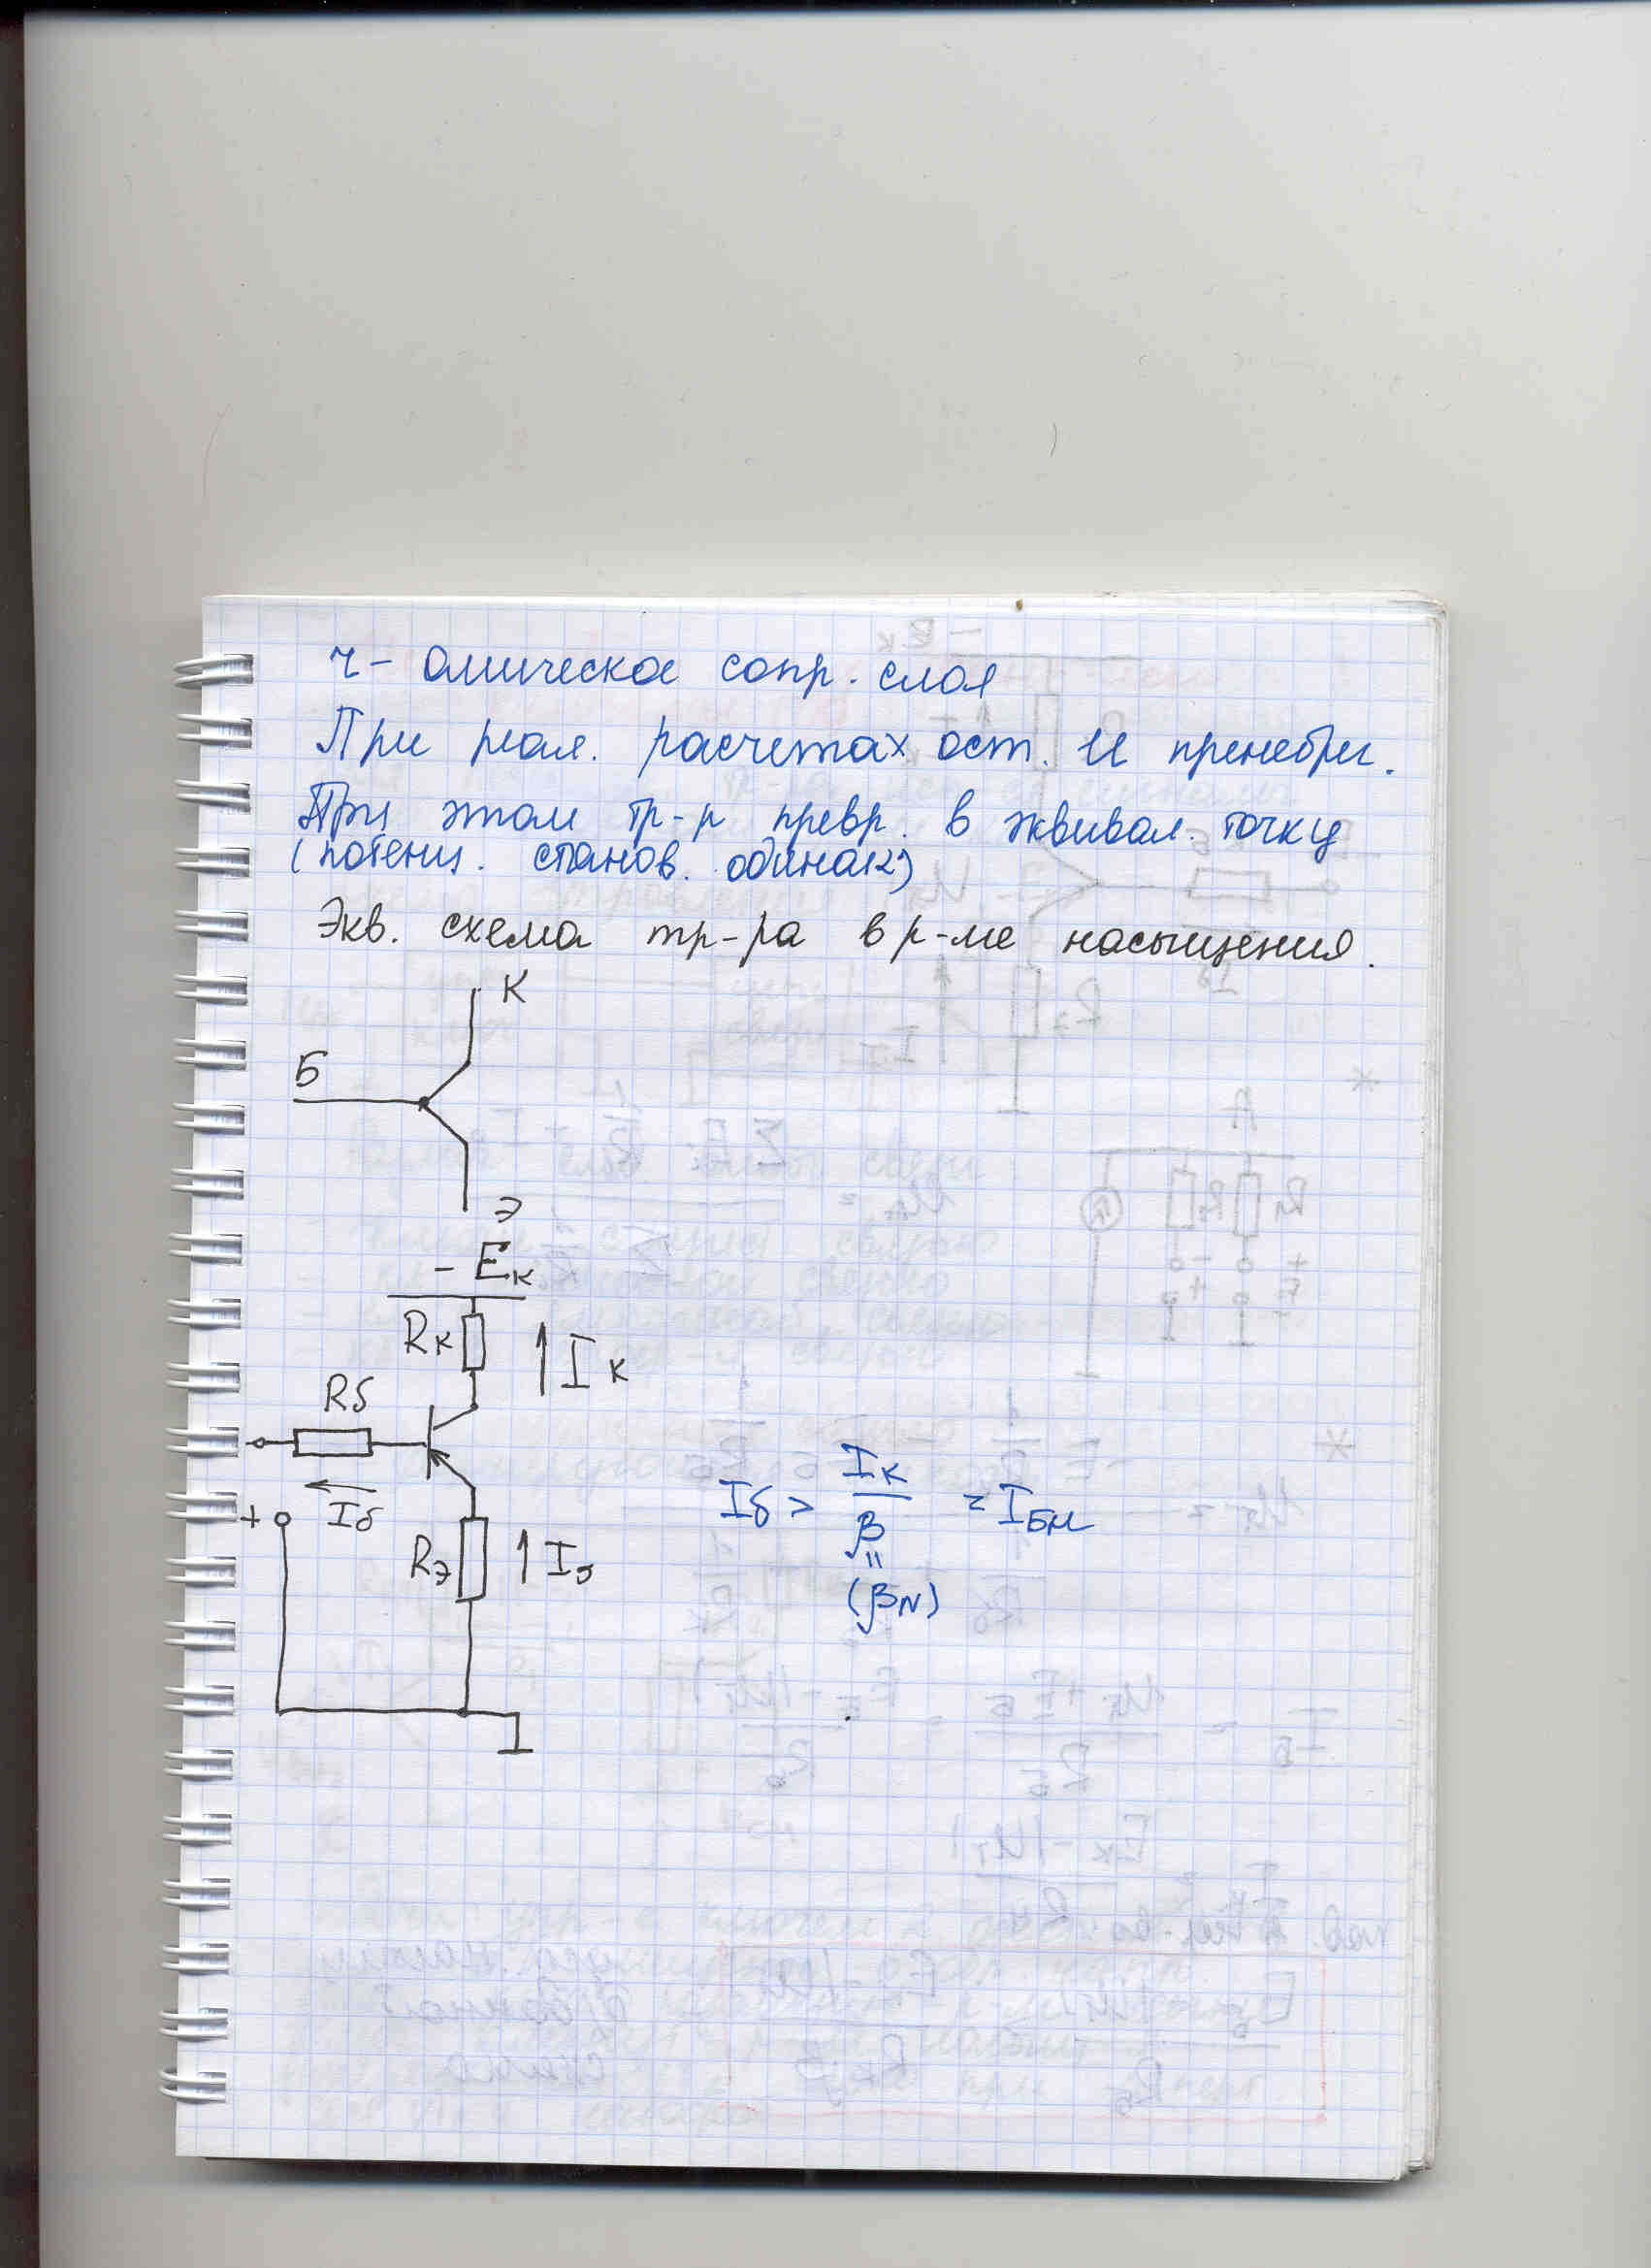 r- омическое сопр. слоя
При реал. расчетах ост. U пренебрег.
При этом тр-р превр. в эквивал. точку
(потенц. станов. одинак)
Экв. схема тр-ра в р-ме насыщения.
К
Б
Э
- Eк
Rк
Iк
Rб
Iб
+
Rэ
Iэ
Iб > Iк / β = Iбн
"
(βN)